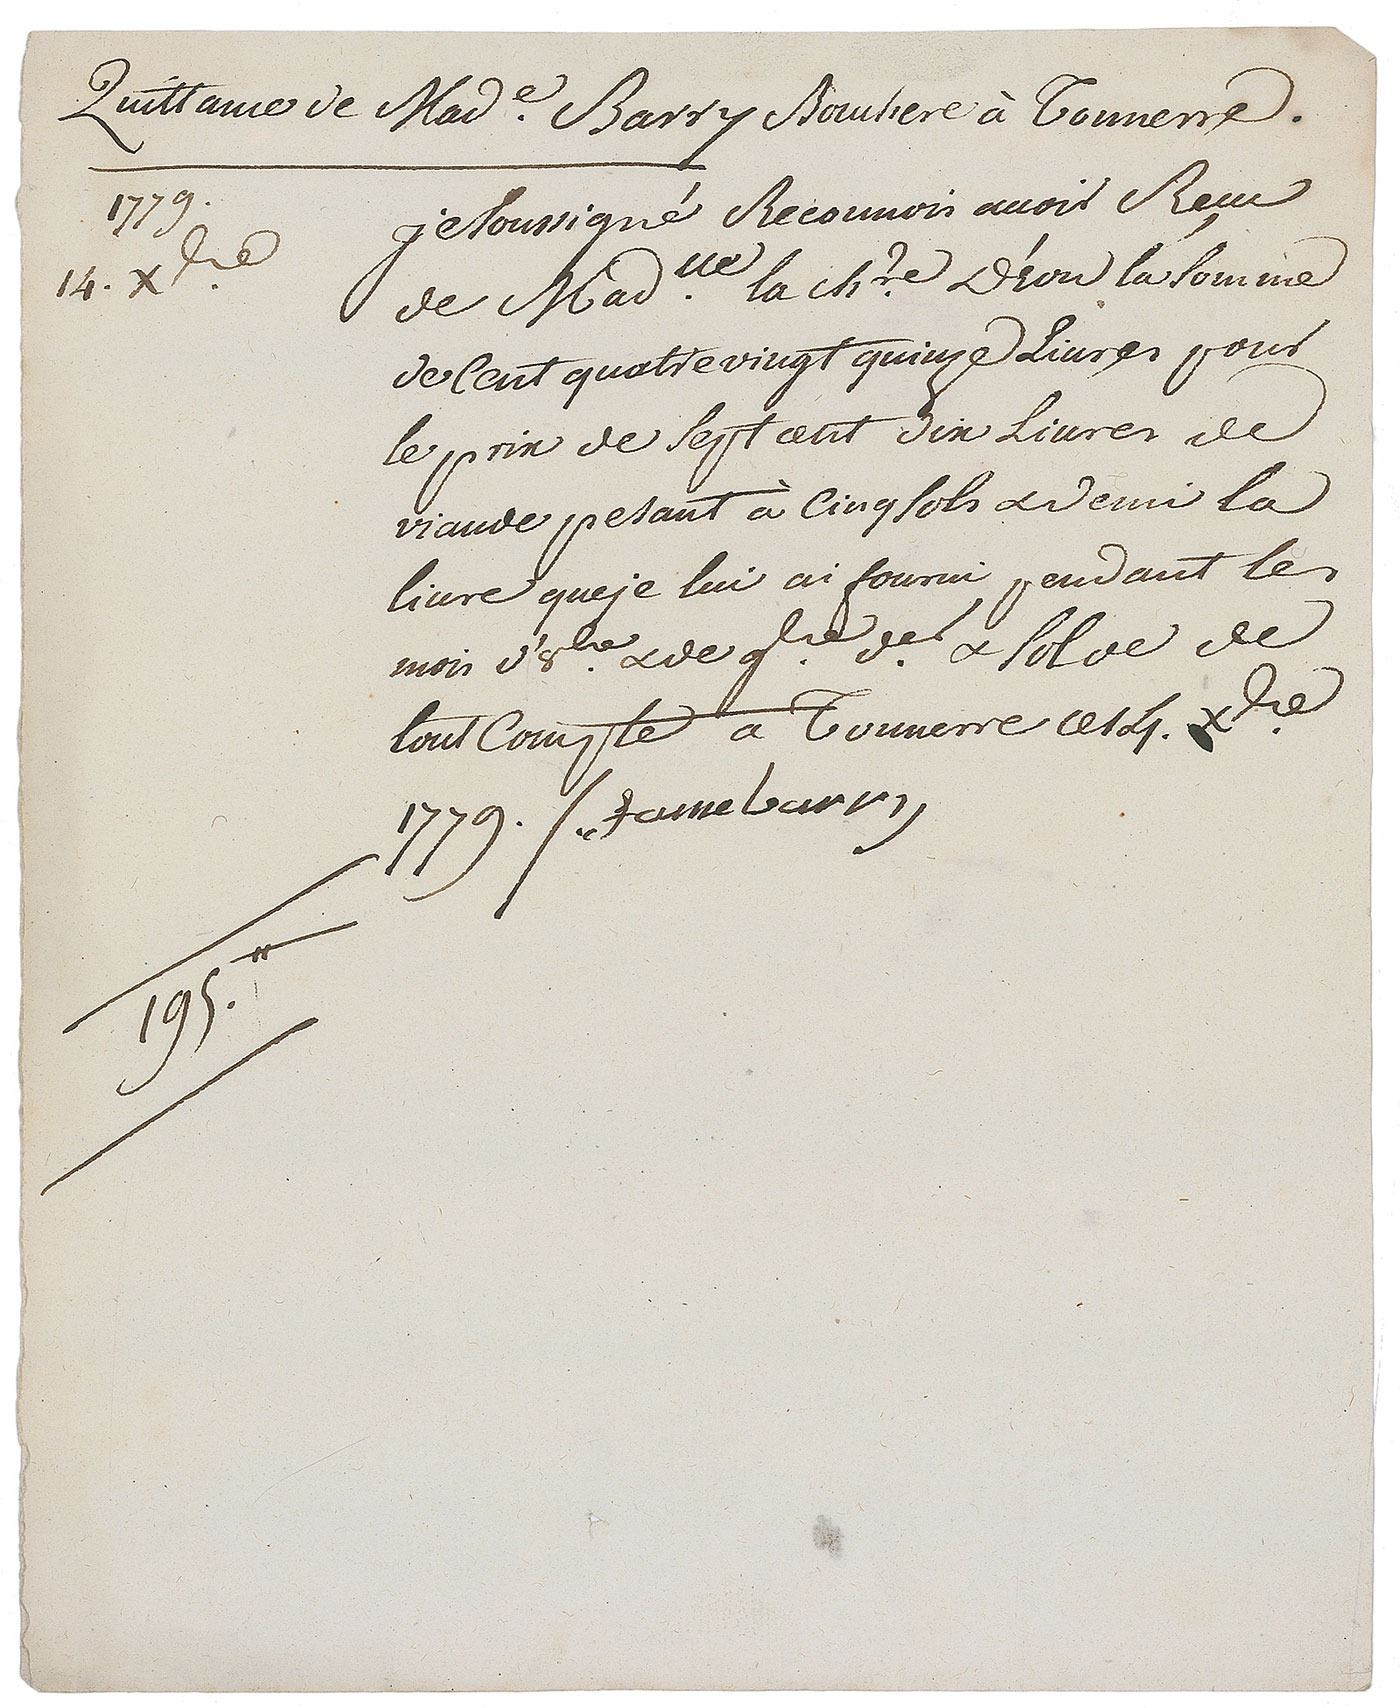 Quittance de Mad.e Barry Bouchere à Tonnerre.
1779.
14. Xbre.
je soussigné Reconnois avoir Reçu
de Mad.lle la ch.re D'éon la somme
de Cent quatrevingt quinze Livres pour
le prix de sept cent dix Livres de
viande pesant à Cinq sols & demi la
livre que je lui ai fourni pendant les
mois d'8bre. & de 9bre. der. & solde de
tout Compte a Tonnerre ce 14. Xbre.
1779. /. fame barry
195.₶